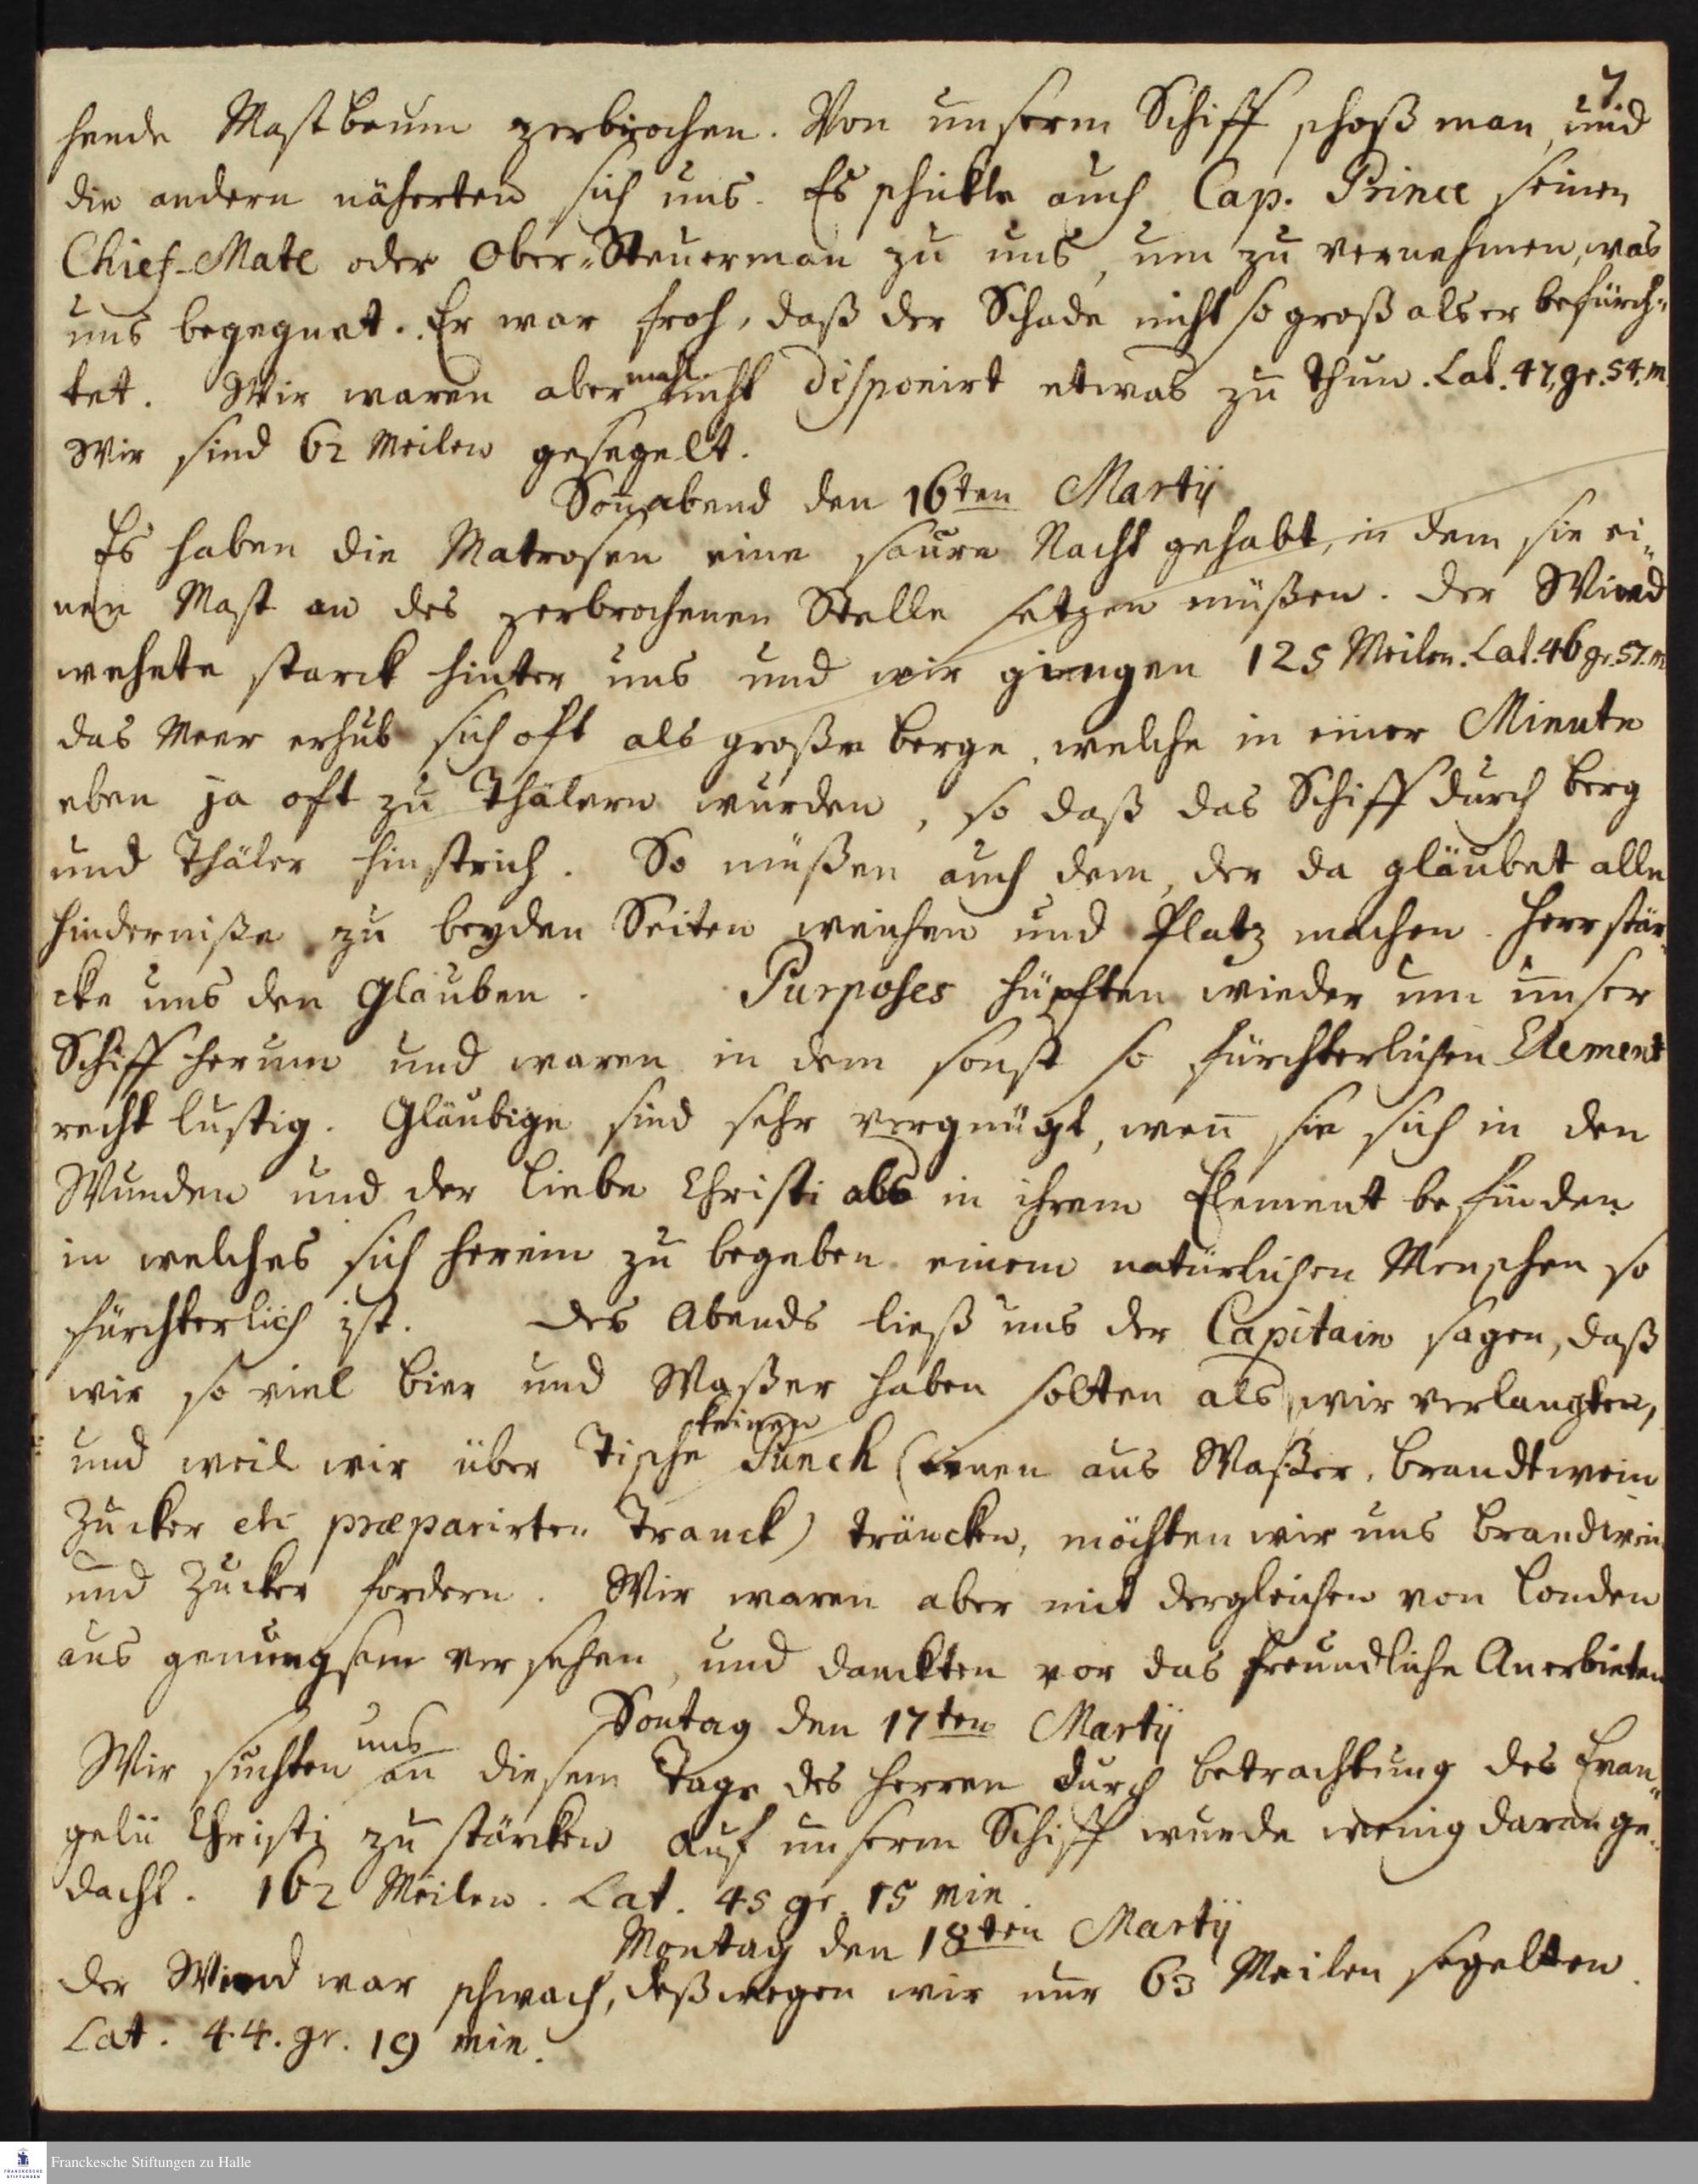 7
hende Mastbaum zerbrochen. Von unserm Schiff schoß man, und
die andern näherten sich uns. Es schickte auch Cap. Prince seinen
Chief-Mate oder Ober-Steuerman zu uns, um zu vernehmen, was
uns begegnet. Er war froh, daß der Schade nicht so groß als er befürch-
tet. Wir waren aber nicht disponirt etwas zu thun. Lat. 47, gr. 54. m.
Wir sind 62 Meilen gesegelt.
Soñabend den 16ten Martij
Es haben die Matrosen eine saure Nacht gehabt, in dem sie ei-
nen Mast an des zerbrochenen Stelle setzen müßen. Der Wind
wehete starck hinter uns und wir giengen 125 Meilen. Lat. 46 gr. 57. m
das Meer erhub sich oft als große berge, welche in einer Minute
eben ja oft zu Thälern wurden, so daß das Schiff durch berg
und Thäler hinstrich. So müßen auch dem, der da gläubet alle
Hinderniße zu beyden Seiten weichen und Platz machen. Herr stär-
cke uns den Glauben. Purposes hüpften wieder um unser
Schiff herum und waren in dem sonst so fürchterlichen Element
recht lustig. Gläubige sind sehr vergnügt, weñ sie sich in den
Wunden und der Liebe Christi als in ihrem Element befinden
in welches sich herein zu begeben einem natürlichen Menschen so
fürchterlich ist. Des Abends ließ uns der Capitain sagen, daß
wir so viel bier und Waßer haben solten als wir verlangten,
und weil wir über Tische keinen Punch (einen aus Waßer, Brandtwein
Zucker etc præparirten Tranck) träncken, möchten wir uns Brandwein
und Zucker fordern. Wir waren aber mit dergleichen von Londen
aus genungsam versehen, und danckten vor das freundliche Anerbieten
Sontag den 17ten Martij
Wir suchten uns an diesem Tage des Herren durch betrachtung des Evan-
gelii Christi zu stärcken Auf unserm Schiff wurde wenig daran ge-
dacht. 162 Meilen. Lat. 45 gr. 15 min.
Montag den 18ten Martij
Der Wind war schwach, deßwegen wir nur 63 Meilen segelten.
Lat. 44. gr. 19 min.
Franckesche Stiftungen zu Halle
FRANCKESCHE STIFTUNGEN